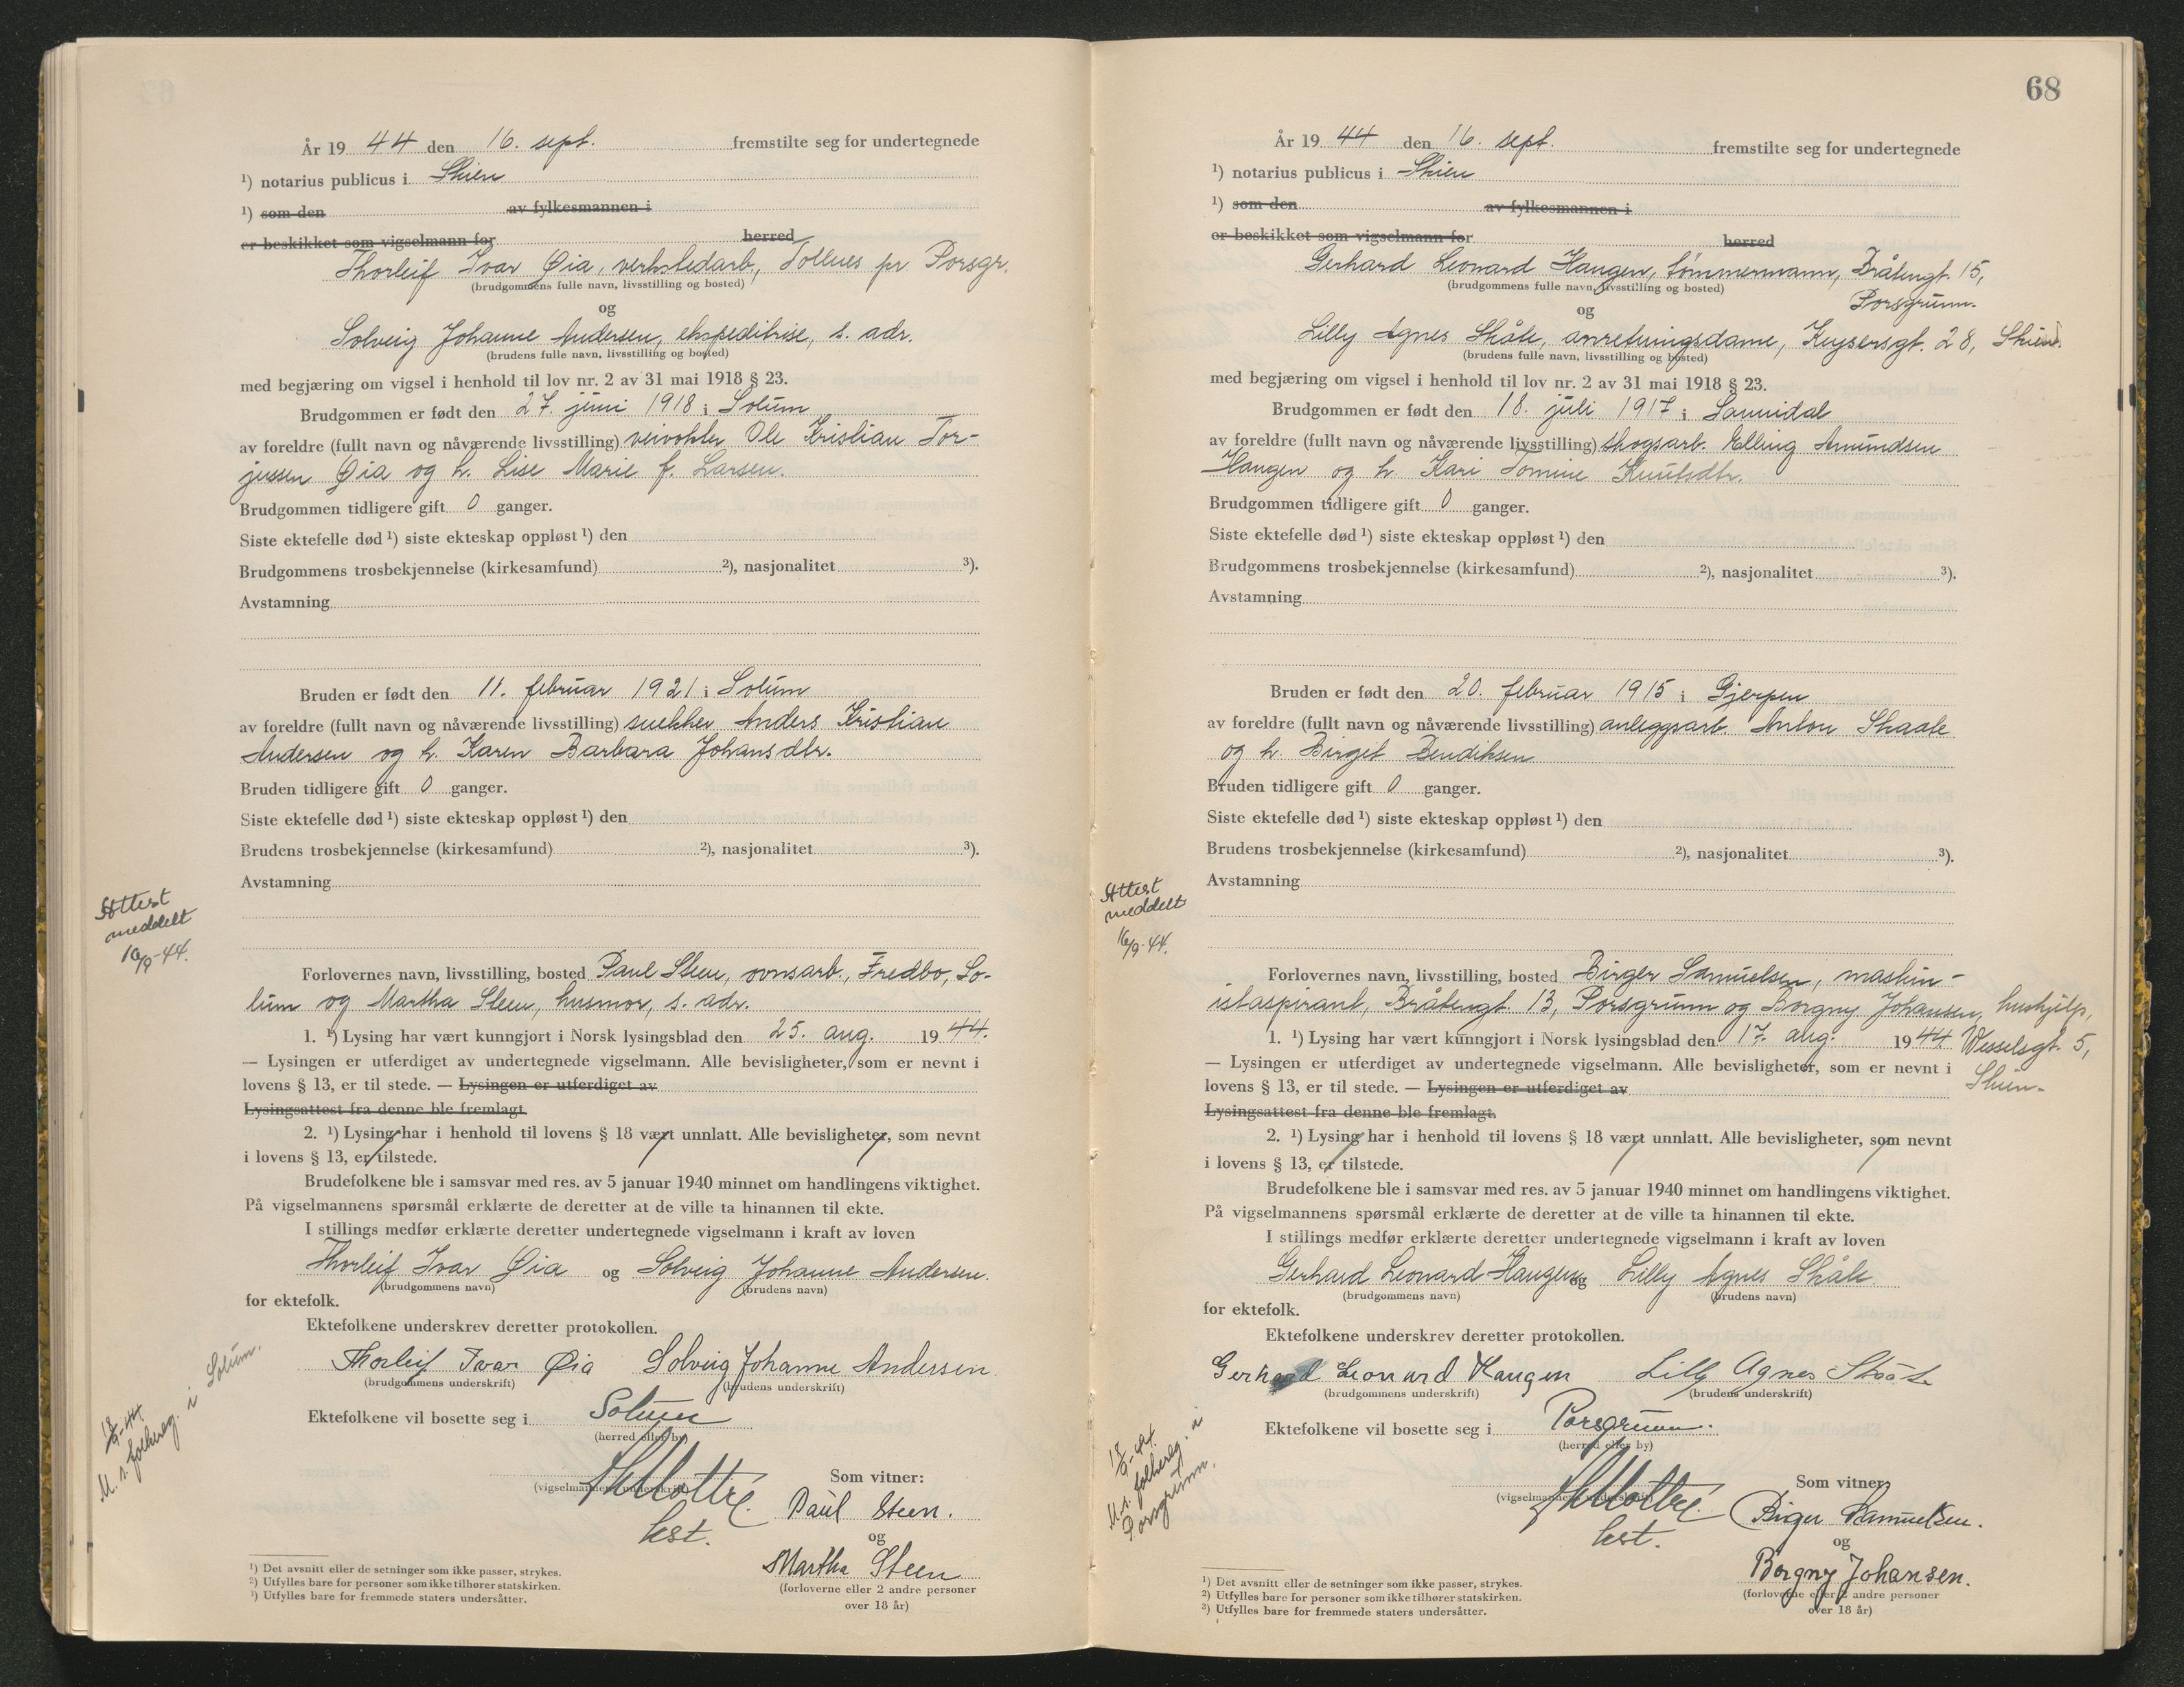 År 19 44 den 16. sept. fremstilte seg for undertegnede
¹) notarius publicus i Skien
¹) som den av fylkesmannen i
er beskikket som vigselmann for herred
Thorleif Ivar Øia, verkstedarb., Tollnes pr Porsgr.
(brudgommens fulle navn, livsstilling og bosted)
og
Solveig Johanne Andersen, ekspeditrise, s. adr.
(brudens fulle navn, livsstilling og bosted)
med begjæring om vigsel i henhold til lov nr. 2 av 31 mai 1918 § 23.
Brudgommen er født den 27. juni 1918 i Solum
av foreldre (fullt navn og nåværende livsstilling) veivokter Ole Kristian Tor-
jussen Øia og h. Lise Marie f. Larsen.
Brudgommen tidligere gift 0 ganger.
Siste ektefelle død ¹) siste ekteskap oppløst ¹) den
Brudgommens trosbekjennelse (kirkesamfund) ²), nasjonalitet ³).
Avstamning
Bruden er født den 11. februar 1921 i Solum
av foreldre (fullt navn og nåværende livsstilling) snekker Anders Kristian
Andersen og h. Karen Barbara Johansdtr.
Bruden tidligere gift 0 ganger.
Siste ektefelle død ¹) siste ekteskap oppløst ¹) den
Brudens trosbekjennelse (kirkesamfund) ²), nasjonalitet ³).
Avstamning
Attest
meddelt
16/9-44.
Forlovernes navn, livsstilling, bosted Paul Steen, ovnsarb., Fredbo, So-
lum og Martha Steen, husmor, s. adr.
1. ¹) Lysing har vært kunngjort i Norsk lysingsblad den 25. aug. 19 44.
— Lysingen er utferdiget av undertegnede vigselmann. Alle bevisligheter, som er nevnt i
lovens § 13, er til stede. — Lysingen er utferdiget av
Lysingsattest fra denne ble fremlagt.
2. ¹) Lysing har i henhold til lovens § 18 vært unnlatt. Alle bevisligheter, som nevnt
i lovens § 13, er tilstede.
Brudefolkene ble i samsvar med res. av 5 januar 1940 minnet om handlingens viktighet.
På vigselmannens spørsmål erklærte de deretter at de ville ta hinannen til ekte.
I stillings medfør erklærte deretter undertegnede vigselmann i kraft av loven
Thorleif Ivar Øia og Solveig Johanne Andersen.
(brudgommens navn) (brudens navn)
for ektefolk.
Ektefolkene underskrev deretter protokollen.
Thorleif Ivar Øia Solveig Johanne Andersen.
(brudgommens underskrift) (brudens underskrift)
Ektefolkene vil bosette seg i Solum
(herred eller by)
18/9-44
M. s. folkereg. i Solum.
(vigselmannens underskrift)
Som vitner:
Paul Steen.
og
Martha Steen
(forloverne eller 2 andre personer
over 18 år)
¹) Det avsnitt eller de setninger som ikke passer, strykes.
²) Utfylles bare for personer som ikke tilhører statskirken.
³) Utfylles bare for fremmede staters undersåtter.
68
År 19 44 den 16. sept. fremstilte seg for undertegnede
¹) notarius publicus i Skien
¹) som den av fylkesmannen i
er beskikket som vigselmann for herred
Gerhard Leonard Haugen, tømmermann, Bråtengt. 15,
(brudgommens fulle navn, livsstilling og bosted)
Porsgrunn.
og
Lilly Agnes Skåte, anretningsdame, Kuysersgt. 28, Skien.
(brudens fulle navn, livsstilling og bosted)
med begjæring om vigsel i henhold til lov nr. 2 av 31 mai 1918 § 23.
Brudgommen er født den 18. juli 1917 i Sannidal
av foreldre (fullt navn og nåværende livsstilling) skogsarb. Elling Amundsen
Haugen og h. Kari Tomine Knutsdtr.
Brudgommen tidligere gift 0 ganger.
Siste ektefelle død ¹) siste ekteskap oppløst ¹) den
Brudgommens trosbekjennelse (kirkesamfund) ²), nasjonalitet ³).
Avstamning
Bruden er født den 20. februar 1915 i Gjerpen
av foreldre (fullt navn og nåværende livsstilling) anleggsarb. Anton Skaate
og h. Birget Bendiksen
Bruden tidligere gift 0 ganger.
Siste ektefelle død ¹) siste ekteskap oppløst ¹) den
Brudens trosbekjennelse (kirkesamfund) ²), nasjonalitet ³).
Avstamning
Attest
meddelt
16/9-44.
Forlovernes navn, livsstilling, bosted Birger Samuelsen, maskin-
istaspirant, Bråtengt. 13, Porsgrunn og Borgny Johansen, hushjelp,
1. ¹) Lysing har vært kunngjort i Norsk lysingsblad den 17. aug. 19 44 Wesselsgt. 5,
— Lysingen er utferdiget av undertegnede vigselmann. Alle bevisligheter, som er nevnt i
Skien.
lovens § 13, er til stede. — Lysingen er utferdiget av
Lysingsattest fra denne ble fremlagt.
2. ¹) Lysing har i henhold til lovens § 18 vært unnlatt. Alle bevisligheter, som nevnt
i lovens § 13, er tilstede.
Brudefolkene ble i samsvar med res. av 5 januar 1940 minnet om handlingens viktighet.
På vigselmannens spørsmål erklærte de deretter at de ville ta hinannen til ekte.
I stillings medfør erklærte deretter undertegnede vigselmann i kraft av loven
Gerhard Leonard Haugen og Lilly Agnes Skåte
(brudgommens navn) (brudens navn)
for ektefolk.
Ektefolkene underskrev deretter protokollen.
Gerhard Leonard Haugen Lilly Agnes Skaate
(brudgommens underskrift) (brudens underskrift)
Ektefolkene vil bosette seg i Porsgrunn.
(herred eller by)
18/9-44.
M. s. folkereg. i
Porsgrunn.
(vigselmannens underskrift)
Som vitner:
Birger Samuelsen.
og
Borgny Johansen.
(forloverne eller 2 andre personer
over 18 år)
¹) Det avsnitt eller de setninger som ikke passer, strykes.
²) Utfylles bare for personer som ikke tilhører statskirken.
³) Utfylles bare for fremmede staters undersåtter.